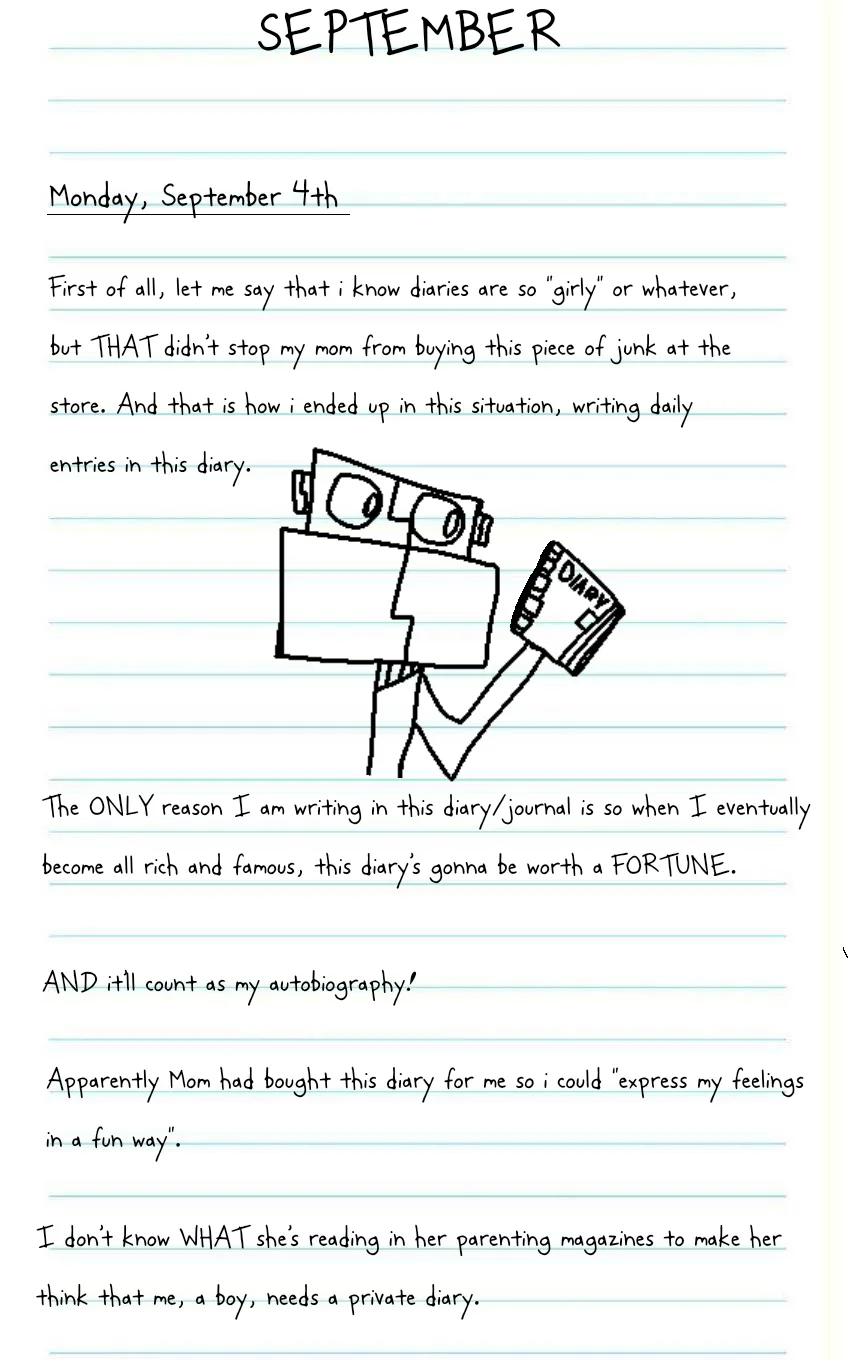 SEPTEMBER
Monday, September 4th
First of all, let me say that i know diaries are so "girly" or whatever,
but THAT didn't stop my mom from buying this piece of junk at the
store. And that is how i ended up in this situation, writing daily
entries in this diary.
DIARY
The ONLY reason I am writing in this diary/journal is so when I eventually
become all rich and famous, this diary's gonna be worth a FORTUNE.
AND it'll count as my autobiography!
Apparently Mom had bought this diary for me so i could "express my feelings
in a fun way".
I don't know WHAT she's reading in her parenting magazines to make her
think that me, a boy, needs a private diary.